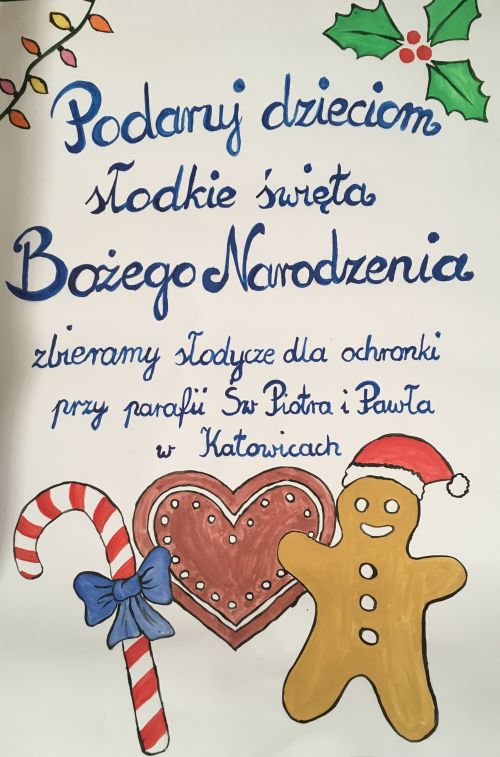 Podaruj dzieciom
słodkie święta
Bożego Narodzenia
zbieramy słodycze dla ochronki
przy parafii Św Piotra i Pawła
w Katowicach